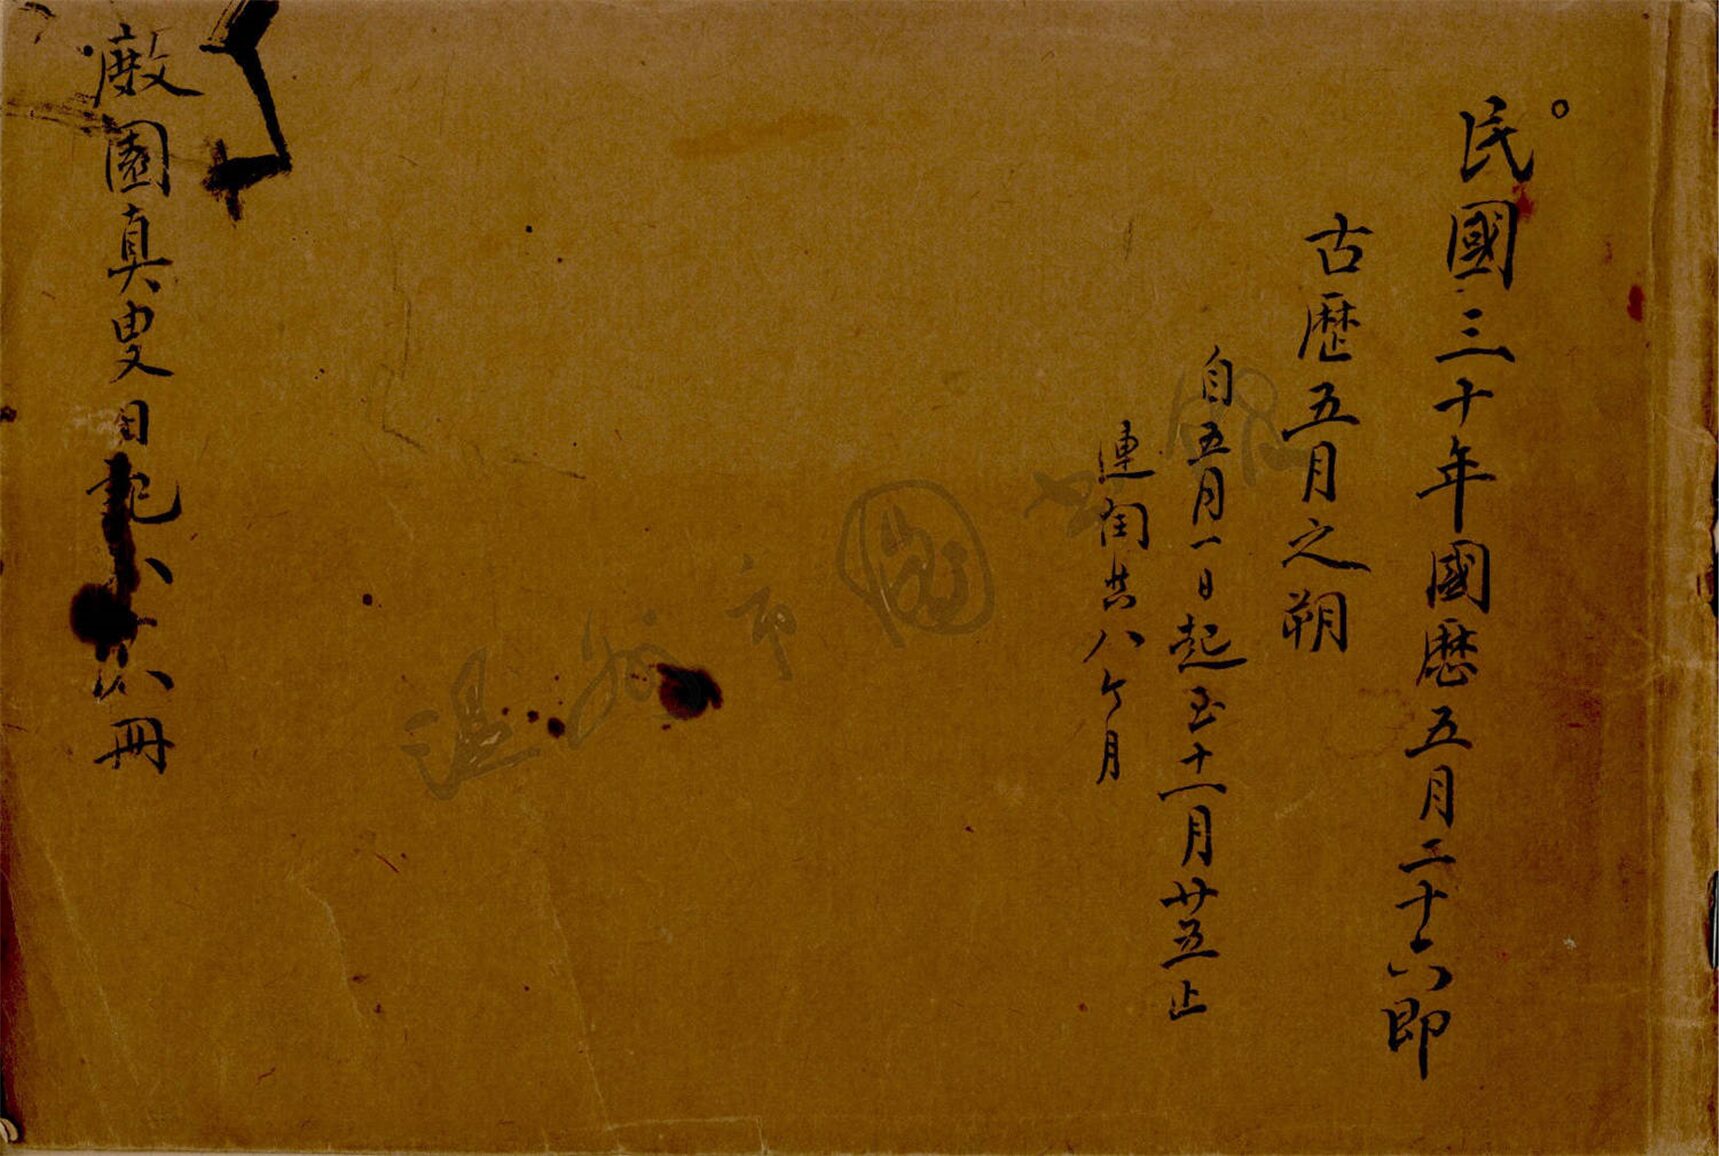 民國三十年國歷五月二十六即
古歷五月之朔
自五月一日起至十一月廿五止
連閏共八个月
厰園真叟日記 冊
温州市圖書館